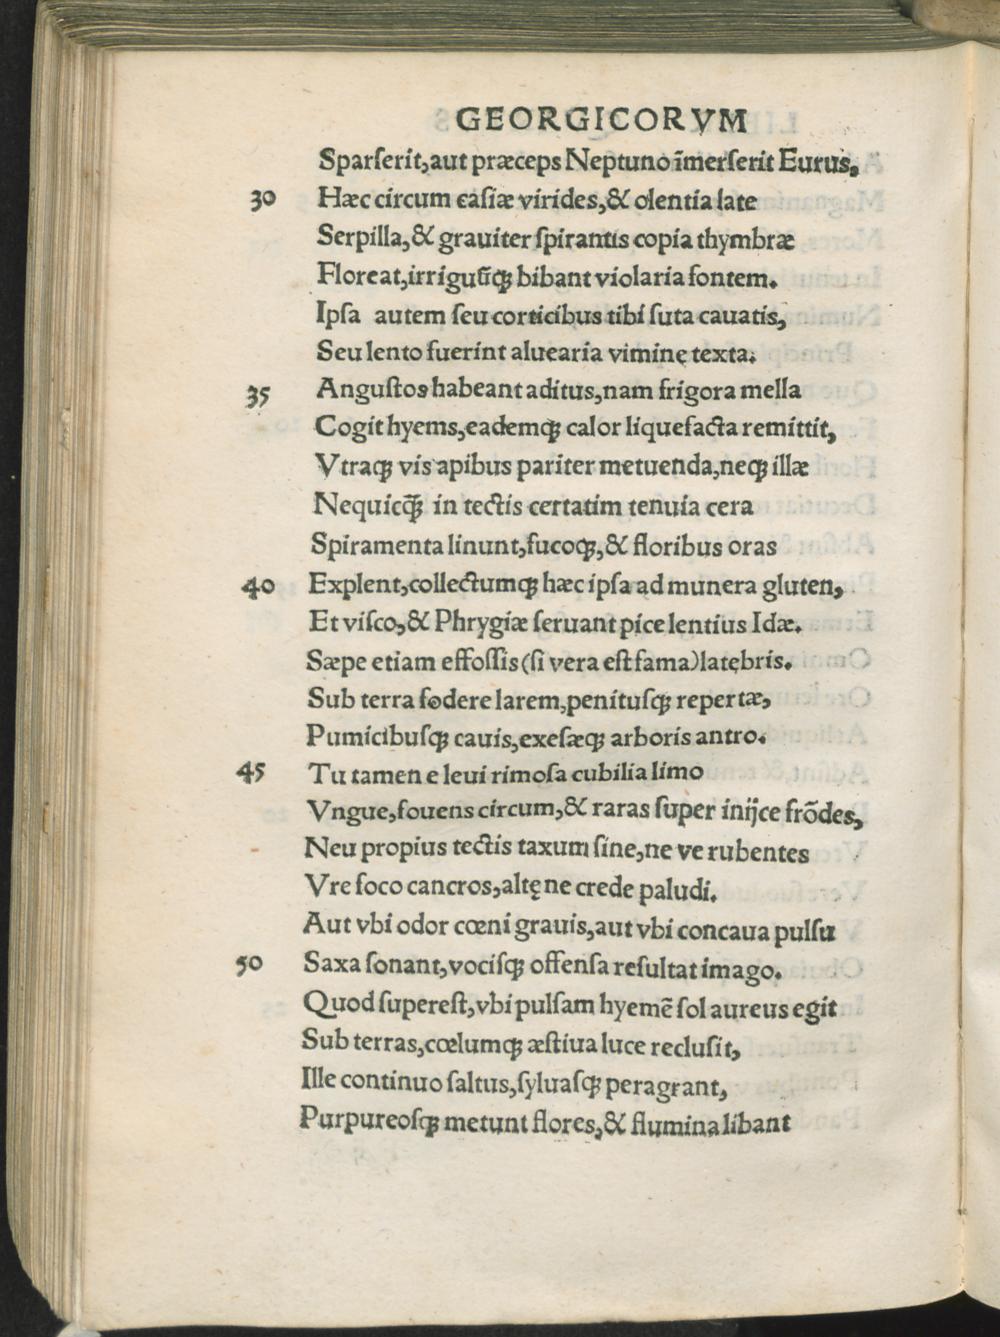 GEORGICORVM
Sparſerit,aut præceps Neptuno im̄erſerit Eurus,
30 Hæc circum caſiæ virides,& olentia late
Serpilla,& grauiter ſpirantis copia thymbræ
Floreat,irriguūꝗ; bibant violaria fontem.
Ipſa autem ſeu corticibus tibi ſuta cauatis,
Seu lento fuerint aluearia vimine texta.
35 Anguſtos habeant aditus,nam frigora mella
Cogit hyems,eademꝗ; calor liquefacta remittit,
Vtraꝗ; vis apibus pariter metuenda,neꝗ; illæ
Nequicꝗ̄ in tectis certatim tenuia cera
Spiramenta linunt,fucoꝗ;,& floribus oras
40 Explent,collectumꝗ; hæc ipſa ad munera gluten,
Et viſco,& Phrygiæ ſeruant pice lentius Idæ.
Sæpe etiam effoſſis(ſi vera eſt fama)latębris.
Sub terra fodere larem,penituſꝗ; repertæ,
Pumicibuſꝗ; cauis,exeſæꝗ; arboris antro.
45 Tu tamen e leui rimoſa cubilia limo
Vngue,fouens circum,& raras ſuper inijce frōdes,
Neu propius tectis taxum ſine,ne ve rubentes
Vre foco cancros,altę ne crede paludi.
Aut vbi odor cœni grauis,aut vbi concaua pulſu
50 Saxa ſonant,vociſꝗ; offenſa reſultat imago.
Quod ſupereſt,vbi pulſam hyemē ſol aureus egit
Sub terras,cœlumꝗ; æſtiua luce recluſit,
Ille continuo ſaltus,ſyluaſꝗ; peragrant,
Purpureoſꝗ; metunt flores,& flumina libant